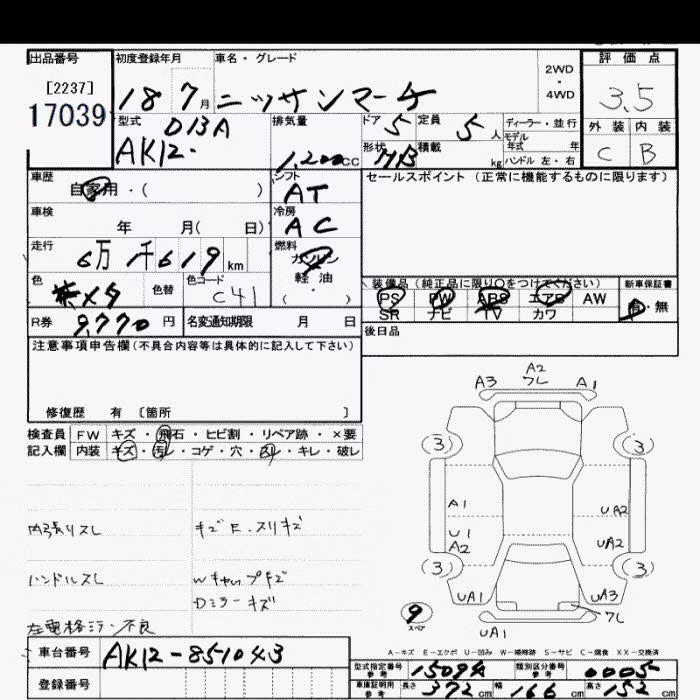 出品番号 初度登録年月 車名・グレード 評価点
[2237]
17039
18 7月 ニッサンマーチ 2WD・4WD 3.5
型式 DBA AK12. 排気量 1,200cc ドア 5 定員 5人 ディーラー・並行
形状 HB 積載 kg モデル年式 年 ハンドル 左・右
外装 内装
C B
車歴 自家用・( ) シフト AT セールスポイント(正常に機能するものに限ります)
車検 年 月( 日) 冷房 AC
走行 6万 千619km 燃料 ガソリン 軽油 ( )
色 メタ 色替 色コード C41
装備品(純正品に限り○をつけてください) 新車保証書
PS PW ABS エアB AW 有・無
SR ナビ TV カワ
R券 9,770円 名変通知期限 月 日 後日品
注意事項申告欄(不具合内容等は具体的に記入して下さい)
修復歴 有 〔箇所 〕
検査員 FW キズ・飛石・ヒビ割・リペア跡・×要
記入欄 内装 キズ・汚レ・コゲ・穴・凹・キレ・破レ
内張リスレ キズE.スリキズ
ハンドルスレ Wキャップキズ
Dミラーキズ
左電格ミラー不良
A2
A3 フレ A1
(3) (3)
A1 UA2
U1 UA2
A2
(3) (3)
UA1 UA3
9 フレ
スペア
UA1
A-キズ E-エクボ U-凹み W-補修跡 S-サビ C-腐食 XX-交換済
車台番号 AK12-851043
登録番号
型式指定番号 参考 15094 類別区分番号 参考 0005
車庫証明用 参考 長さ 372cm 幅 166cm 高さ 152cm